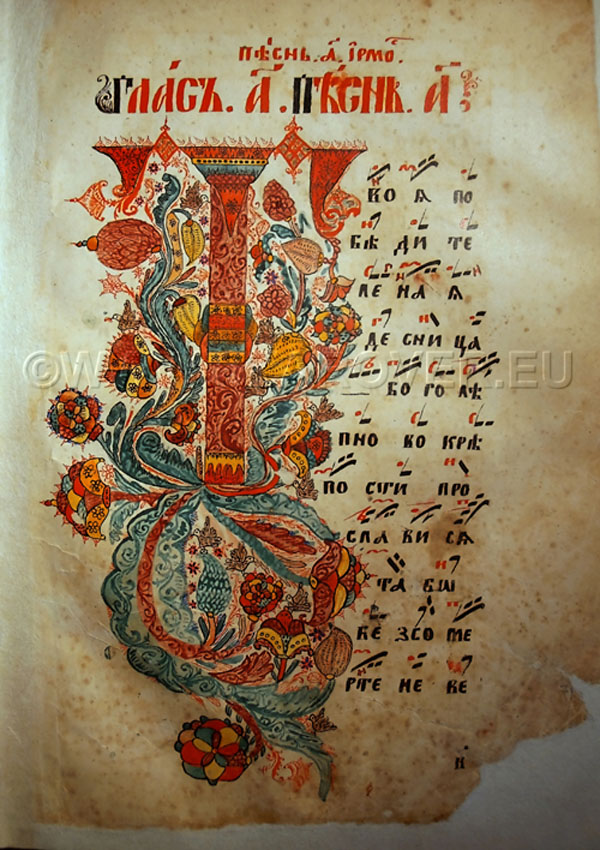 пѣснь. а҃. ірмо҇.
Гласъ. а҃. Пѣснь. а҃
воя по
бѣ ди те
ле на я
де сни ца
бо го лѣ
пно во крѣ
по сти про
сла ви ся
та бш
бе зсо ме
рте не бе
н